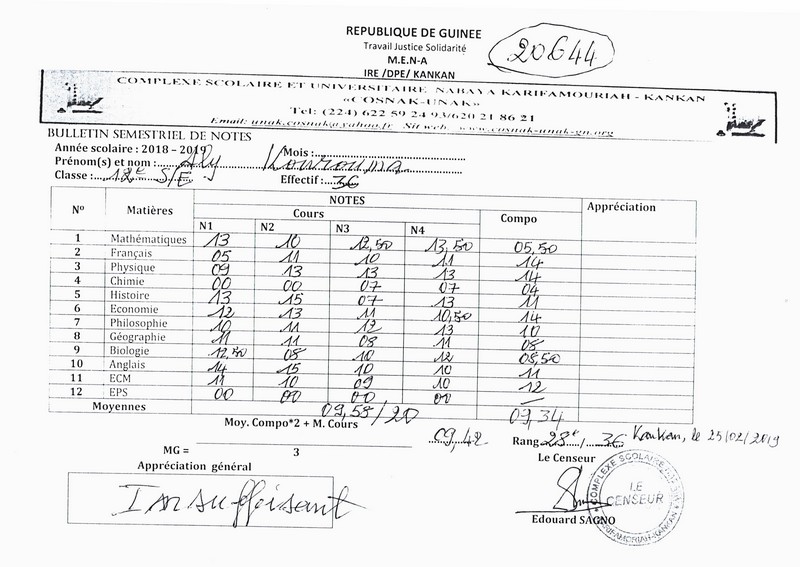 REPUBLIQUE DE GUINEE
Travail Justice Solidarité
M.E.N-A
IRE /DPE/ KANKAN
20644
COMPLEXE SCOLAIRE ET UNIVERSITAIRE NABAYA KARIFAMOURIAH - KANKAN
«COSNAK-UNAK»
Tel: (224) 622 59 24 93/620 21 86 21
Email: unak.cosnak@yahoo.fr Sit web: www.cosnak-unak-gn.org
BULLETIN SEMESTRIEL DE NOTES
Année scolaire : 2018 – 2019 Mois :
Prénom(s) et nom : Aly Kourouma
Classe : 12e S/E Effectif : 36
N° Matières NOTES Appréciation
Cours Compo
N1 N2 N3 N4
1 Mathématiques 13 10 12,50 13,50 05,50
2 Français 05 11 10 11 14
3 Physique 09 13 13 13 14
4 Chimie 00 00 07 07 04
5 Histoire 13 15 07 13 11
6 Economie 12 13 11 10,50 14
7 Philosophie 10 11 12 13 10
8 Géographie 11 11 08 11 08
9 Biologie 12,50 08 10 12 08,50
10 Anglais 14 15 10 10 11
11 ECM 11 10 09 10 12
12 EPS 00 00 00 00 —
Moyennes 09,58/20 09,34
Moy. Compo*2 + M. Cours 09,42 Rang 28e/ 36 Kankan, le 25/02/2019
MG =
3
Le Censeur
Appréciation général
Insuffisant
COMPLEXE SCOLAIRE
LE
CENSEUR
KARIFAMORIAH-KANKAN
Edouard SAGNO